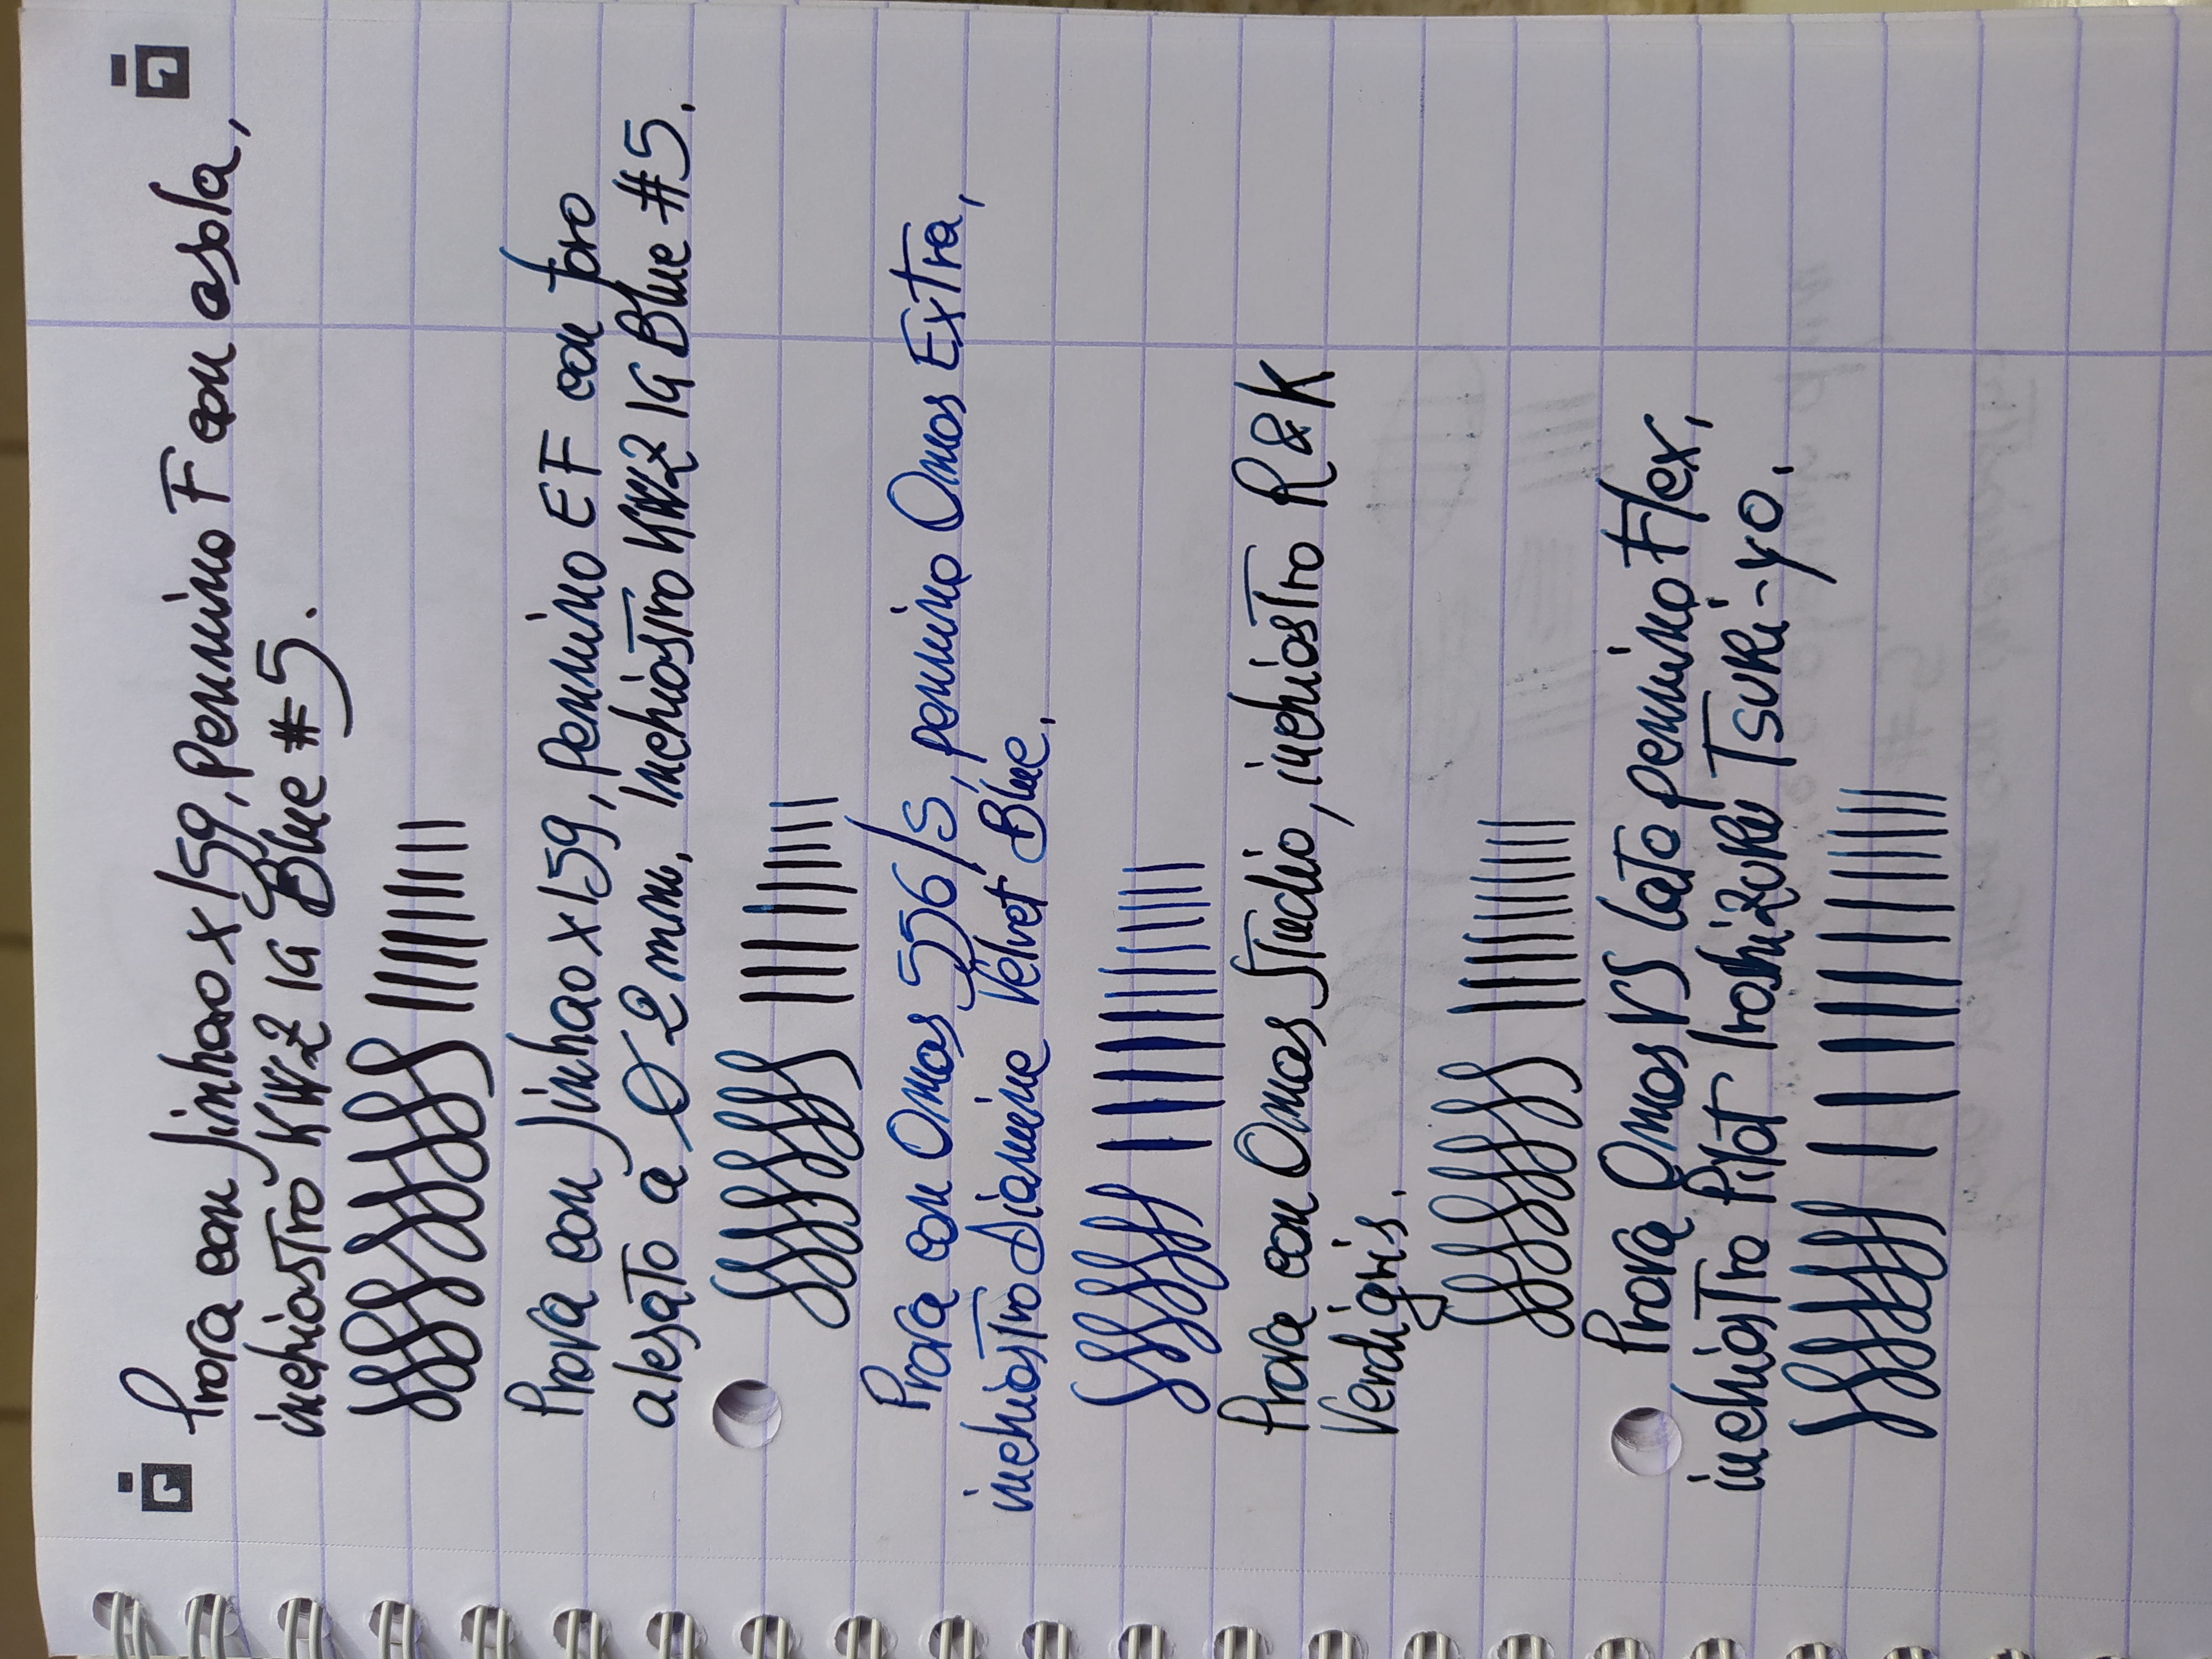 Prova con Jinhao x159, pennino F con asola,
inchiostro KWZ IG Blue #5.
Prova con Jinhao x159, pennino EF con foro
alesato a Ø 2 mm, inchiostro KWZ IG Blue #5.
Prova con Omas 556/S, pennino Omas Extra,
inchiostro Diamine Velvet Blue.
Prova con Omas Studio, inchiostro R&K
Verdigris.
Prova Omas VS lato pennino Flex,
inchiostro Pilot Iroshizuku Tsuki-yo.